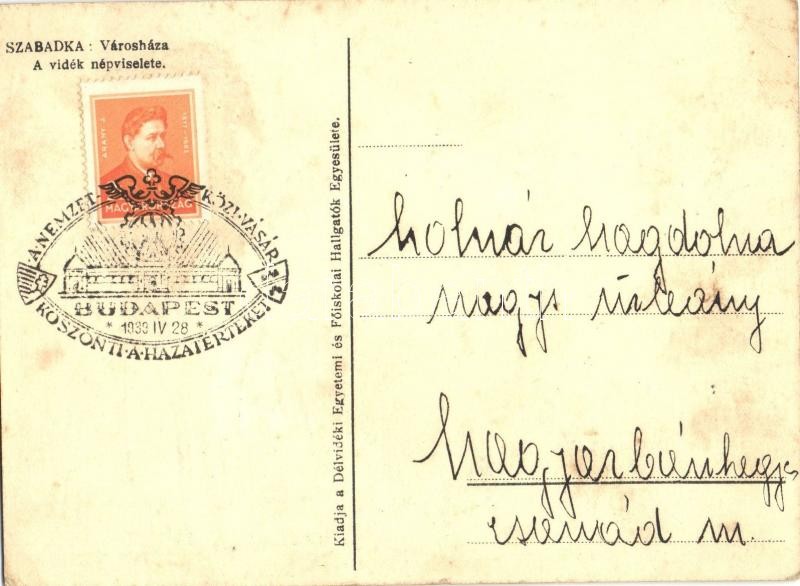 SZABADKA : Városháza
A vidék népviselete.
ARANY J.
1817-1882
MAGYARORSZÁG
A·NEMZETKÖZI·VÁSÁR
BUDAPEST
* 1939 IV 28 *
KÖSZÖNTI·A·HAZATÉRTEKET
Kiadja a Délvidéki Egyetemi és Főiskolai Hallgatók Egyesülete.
Molnár Magdolna
nagys úrleány
Magyarbánhegyes
Csanád m.